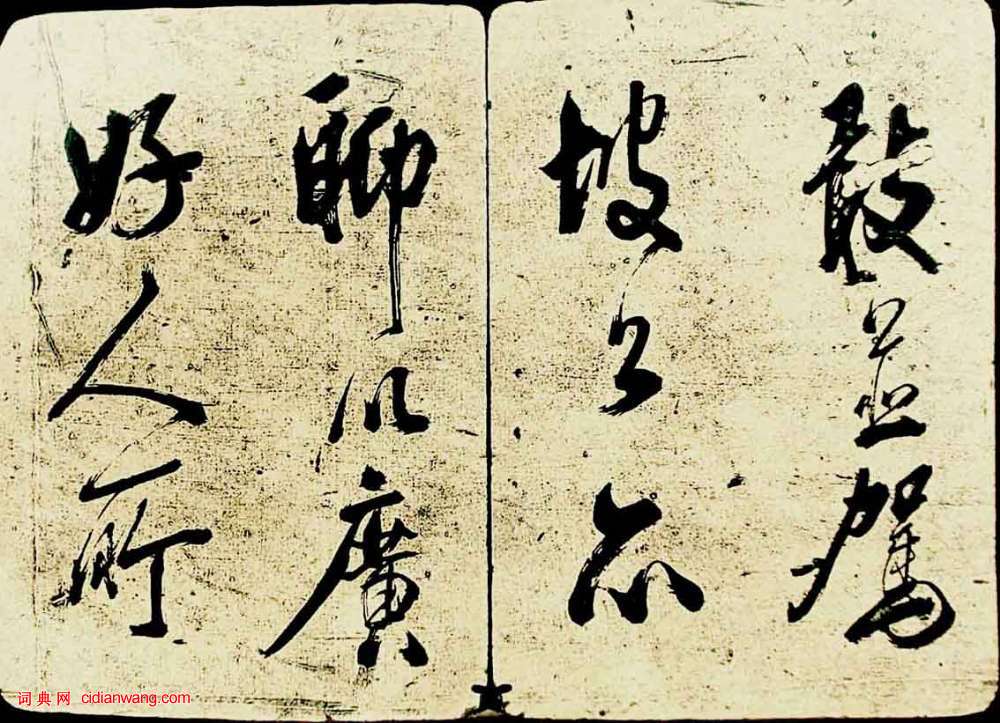 敢並駕
坡公亦
聊以廣
好人所
词典网 cidianwang.com